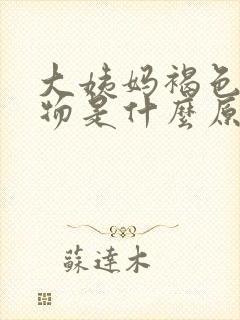 大姨妈褐色
物是什麼原
蘇達木